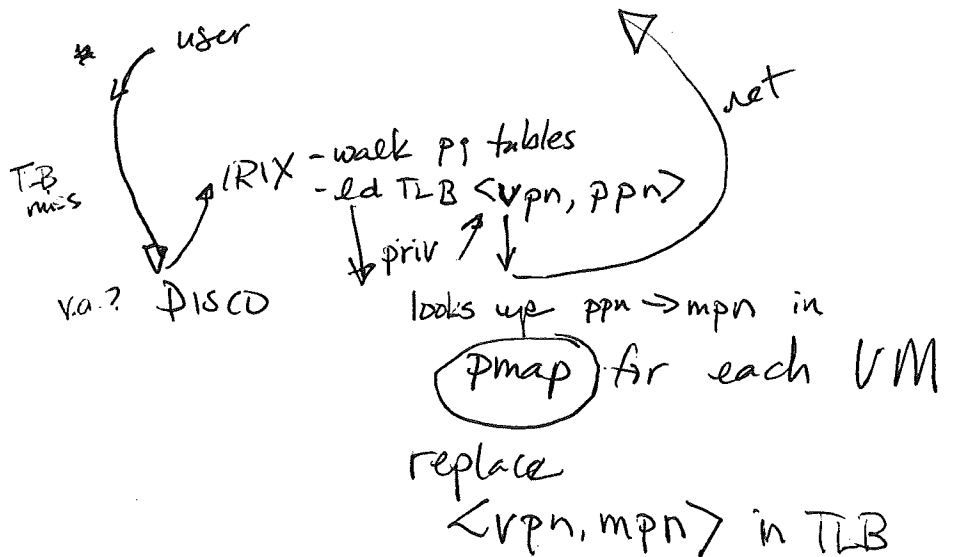 * user
ret
TLB
miss
IRIX - walk pg tables
- ld TLB <vpn, ppn>
priv
v.a.? DISCO
looks up ppn → mpn in
pmap for each VM
replace
<vpn, mpn> in TLB